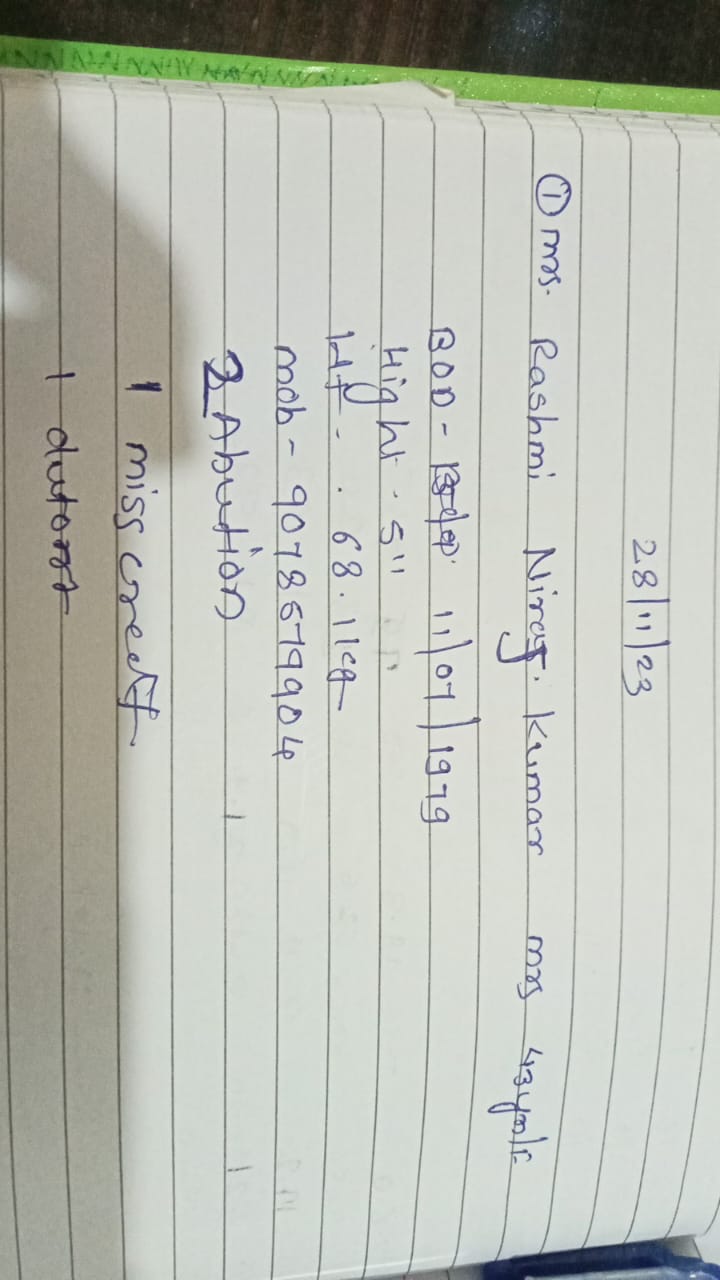 28/11/23
① mrs. Rashmi Niraj. Kumar mrs 43yr/F
BOD - 11/07/1979
Hight - 5"
Wt - . 68.1kg
mob - 9078579904
2 Abution
1 miss
1